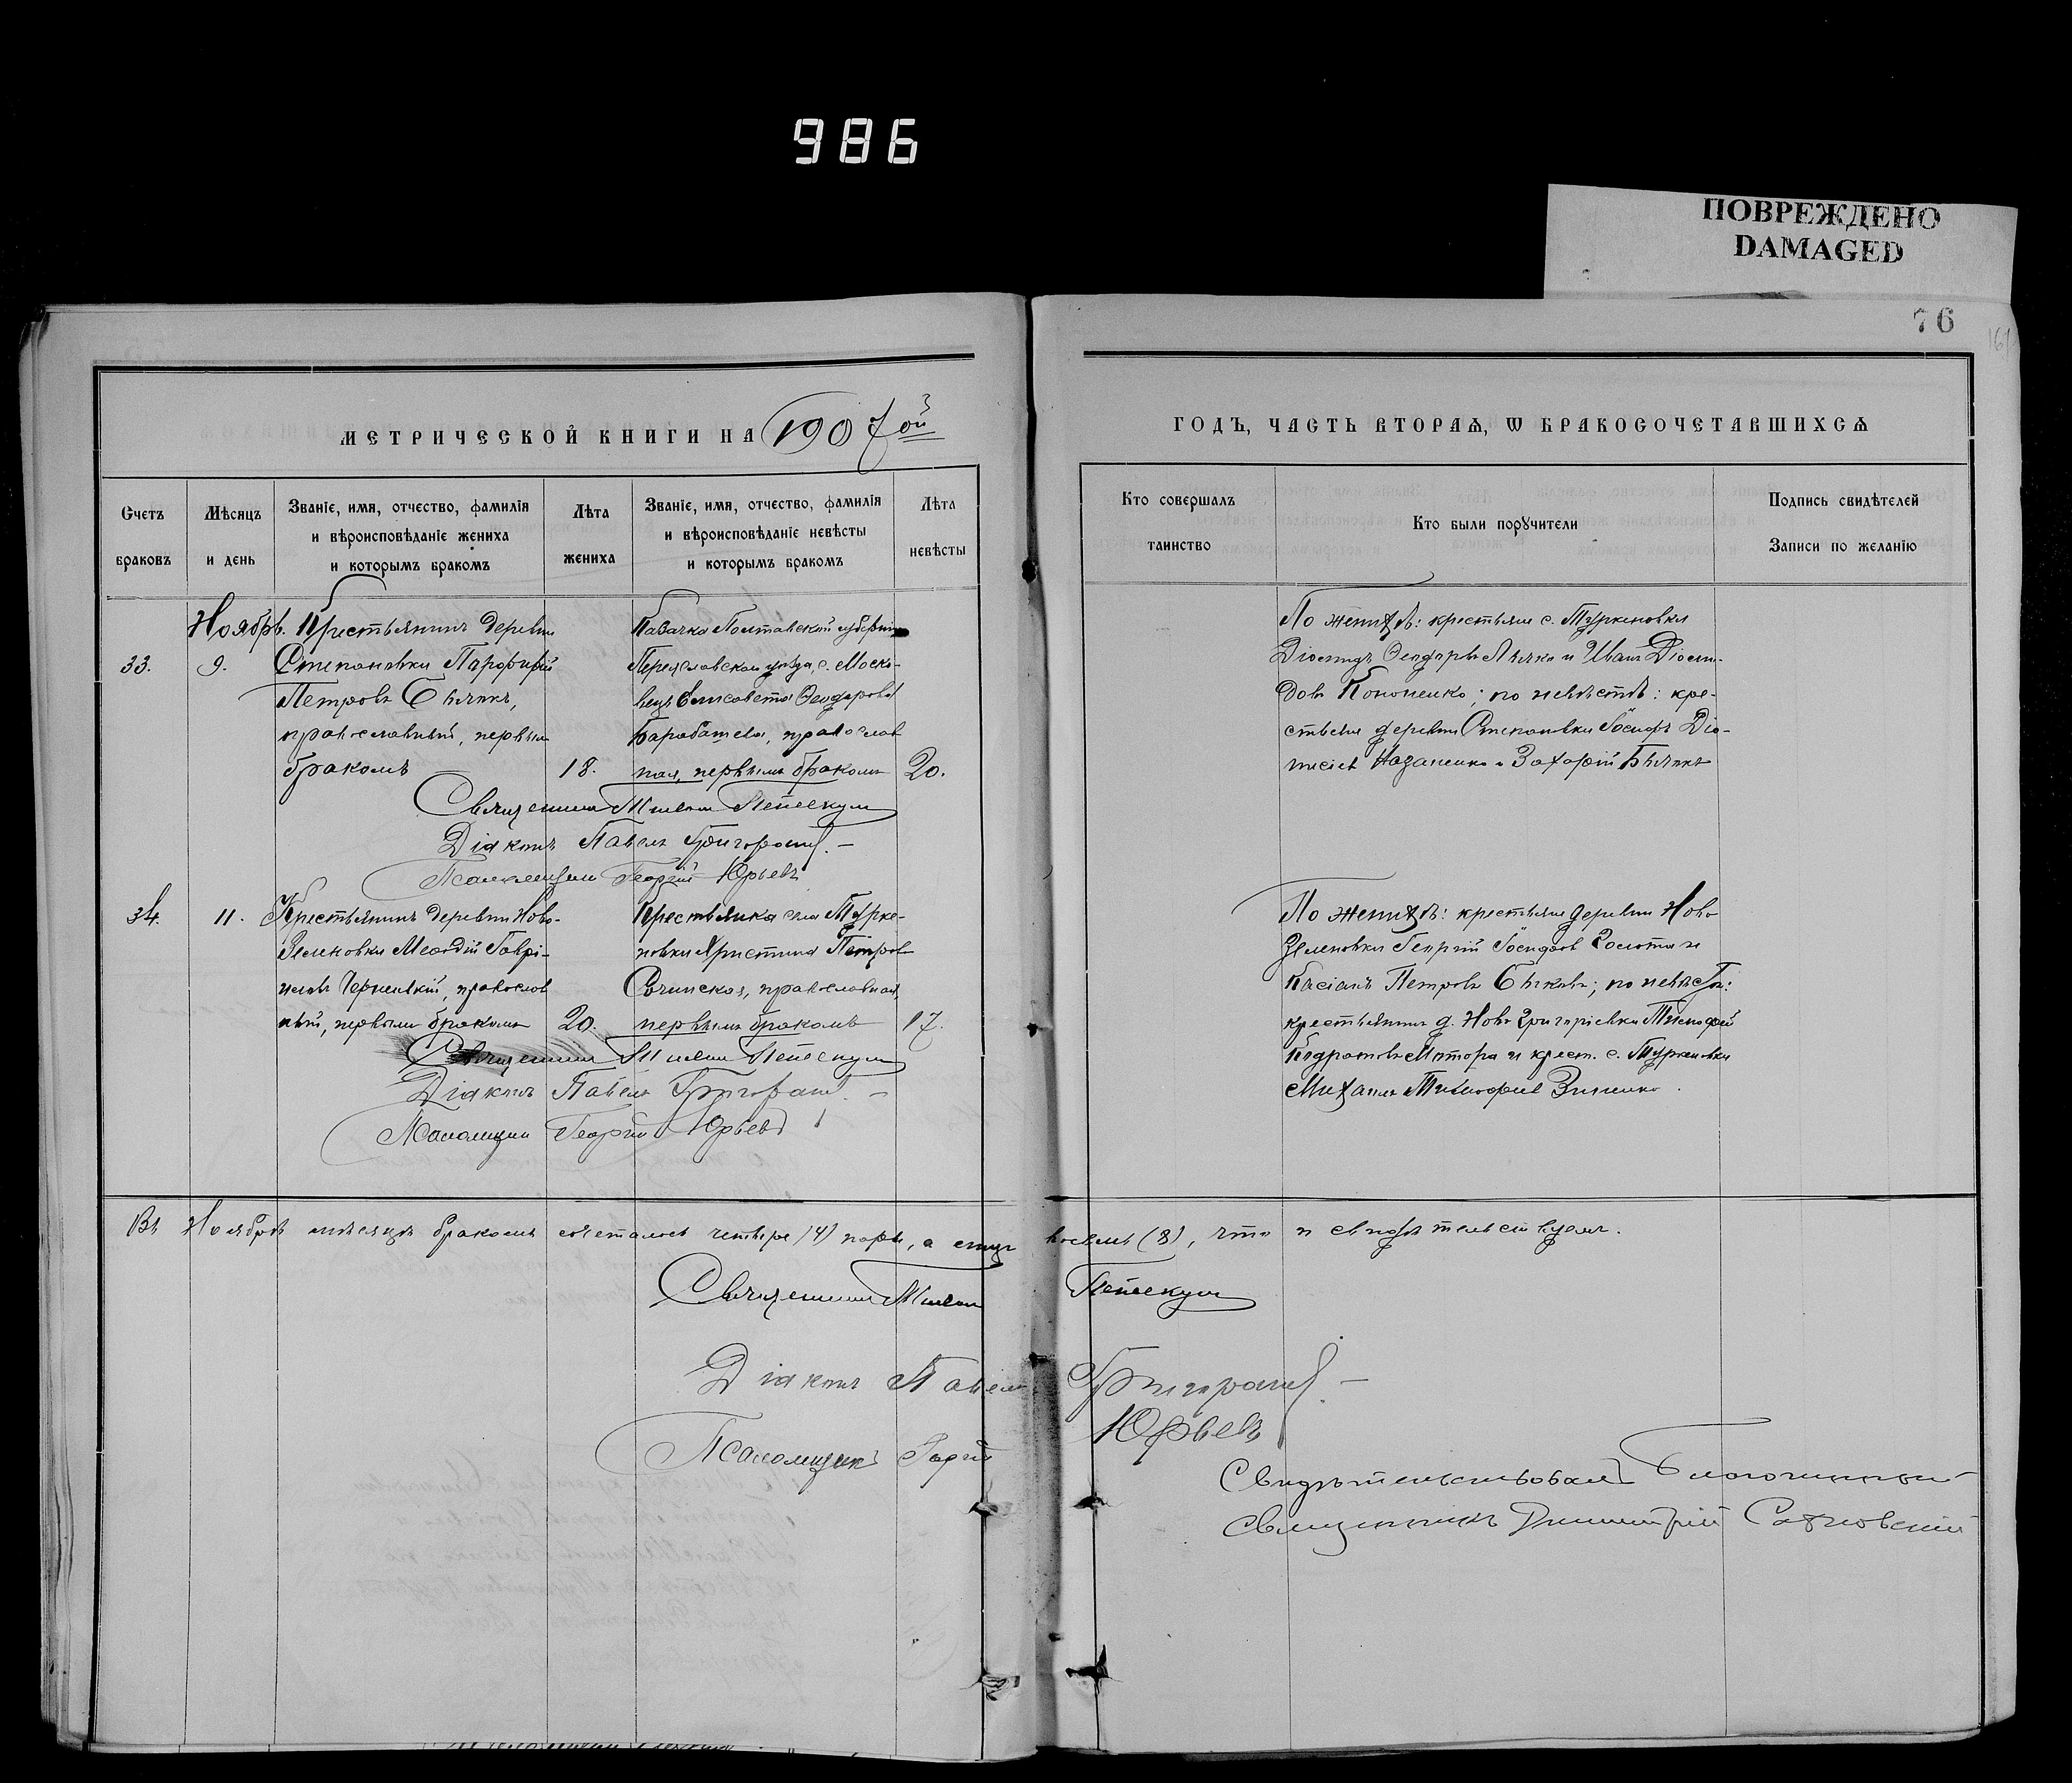 986
ПОВРЕЖДЕНО
DAMAGED
76
161
МЕТРИЧЕСКОЙ КНИГИ НА 1907 ой
ГОДЪ, ЧАСТЬ ВТОРАЯ, Ѡ БРАКОСОЧЕТАВШИХСЯ
Счетъ браковъ
Мѣсяцъ и день
Званіе, имя, отчество, фамилія
и вѣроисповѣданіе жениха
и которымъ бракомъ
Лѣта жениха
Званіе, имя, отчество, фамилія
и вѣроисповѣданіе невѣсты
и которымъ бракомъ
Лѣта невѣсты
Кто совершалъ таинство
Кто были поручители
Подпись свидѣтелей
Записи по желанію
Ноябрь.
33.
9.
Крестьянинъ деревни
Степановки Парфирій
Петровъ Бѣликъ,
православный, первымъ
бракомъ
18.
Казачка Полтавской губерніи
Переяславскаго уѣзда с. Моско-
вецъ Елисавета Ѳеодорова
Барабашева, православ
ная, первымъ бракомъ
20.
По женихѣ: крестьяне с. Туркеновки
Діомидъ Ѳеодоровъ Лячко и Иванъ Діоми-
довъ Кононенко; по невѣстѣ: кре-
стьяне деревни Степановки Іосифъ Діо-
нисіевъ Назаненко и Захарій Бѣликъ
Священникъ
Діаконъ Павелъ Григораш.
Псаломщикъ Георгій Юрьевъ
34.
11.
Крестьянинъ деревни Ново-
Зеленовки Меѳодій Гаврі-
иловъ Чернявкій, православ
ный, первымъ бракомъ
20.
Крестьянка села Турке-
новки Христина Петрова
Сочинская, православная,
первымъ бракомъ
17.
По женихѣ: крестьяне деревни Ново
Зеленовки Георгій Іосифовъ Золота и
Касіанъ Петровъ Быковъ; по невѣстѣ:
крестьянинъ д. Ново Григорьевки Тимофей
Кодратовъ Мотора и крест. с. Туркеновки
Михаилъ Тимофеевъ Зиненко.
Священникъ
Діаконъ Павелъ Григораш.
Псаломщикъ Георгій Юрьевъ
Въ Ноябрѣ мѣсяцѣ бракомъ сочеталось четыре (4) пары, а лицъ восемь (8), что и свидѣтельствуемъ.
Священникъ
Діаконъ Павелъ Григораш.
Псаломщикъ Георгій Юрьевъ
Свидѣтельствовалъ Благочинный
священникъ Димитрій